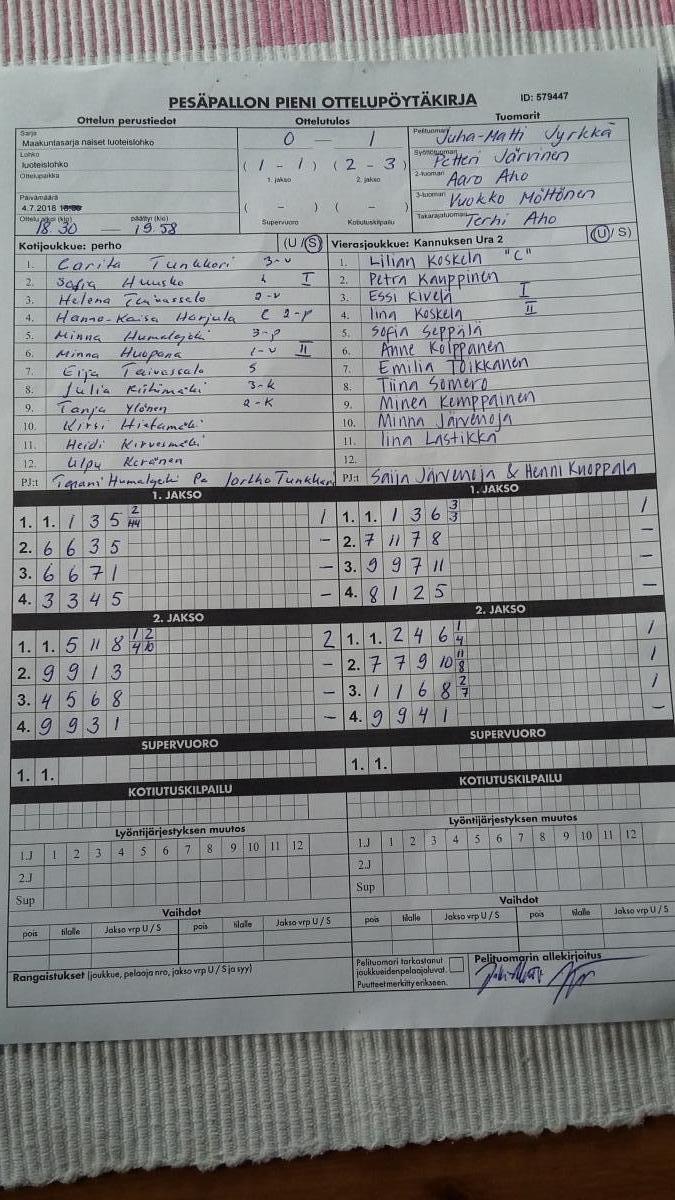 PESÄPALLON PIENI OTTELUPÖYTÄKIRJA ID: 579447
Ottelun perustiedot Ottelutulos Tuomarit
Sarja
Maakuntasarja naiset luoteislohko
0 — 1
Pelituomari Juha-Matti Jyrkkä
Lohko
luoteislohko
(1 - 1) (2 - 3)
1. jakso 2. jakso
Syöttötuomari Petteri Järvinen
Ottelupaikka
2-tuomari Aaro Aho
Päivämäärä
4.7.2018
( - ) ( - )
3-tuomari Vuokko Möttönen
Ottelu alkoi (klo) päättyi (klo)
18.30 — 19.58
Supervuoro Kotiutuskilpailu
Takarajatuomari Terhi Aho
Kotijoukkue: perho (U / S) Vierasjoukkue: Kannuksen Ura 2 (U / S)
1. Carita Tunkkari 3-v 1. Lilian Koskela "C"
2. Sofia Huusko L I 2. Petra Kauppinen
3. Helena 2-v 3. Essi Kivelä I
4. Hanna-Kaisa Harjula C 2-p 4. Iina Koskela II
5. Minna Humalajoki 3-p 5. Sofia Seppälä
6. Minna Huopana 1-v II 6. Anne Kolppanen
7. Eija Taivassalo S 7. Emilia Toikkanen
8. Julia Riihimäki 3-k 8. Tiina Somero
9. Tanja Ylönen 2-K 9. Minea Kemppainen
10. Kirsi Hietamäki 10. Minna Järvenoja
11. Heidi Kirvesmäki 11. Iina Lastikka
12. Ulpu Keränen 12.
PJ:t Humalajoki Jorkko Tunkkari PJ:t Saija Järvenoja & Henni Knoppala
1. JAKSO 1. JAKSO
1. 1. 1 3 5 2/44 1 1. 1. 1 3 6 3/3 1
2. 6 6 3 5 – 2. 7 11 7 8 –
3. 6 6 7 1 – 3. 9 9 7 11 –
4. 3 3 4 5 – 4. 8 1 2 5 –
2. JAKSO 2. JAKSO
1. 1. 5 11 8 1/4 2/10 2 1. 1. 2 4 6 1/4 1
2. 9 9 1 3 – 2. 7 7 9 10 11/8 1
3. 4 5 6 8 – 3. 1 1 6 8 2/7 1
4. 9 9 3 1 – 4. 9 9 4 1 –
SUPERVUORO SUPERVUORO
1. 1. 1. 1.
KOTIUTUSKILPAILU KOTIUTUSKILPAILU
Lyöntijärjestyksen muutos Lyöntijärjestyksen muutos
1.J 1 2 3 4 5 6 7 8 9 10 11 12 1.J 1 2 3 4 5 6 7 8 9 10 11 12
2.J 2.J
Sup Sup
Vaihdot Vaihdot
pois tilalle Jakso vrp U / S pois tilalle Jakso vrp U / S pois tilalle Jakso vrp U / S pois tilalle Jakso vrp U / S
Rangaistukset (joukkue, pelaaja nro, jakso vrp U / S ja syy)
Pelituomari tarkastanut
joukkueiden pelaajaluvat.
Puutteet merkitty erikseen.
Pelituomarin allekirjoitus